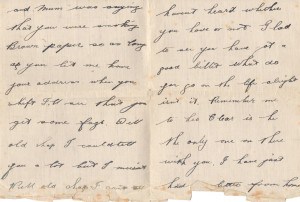 and Mum was saying
that you were smoking
Brown paper so as long
as you let me have
your address when you
shift I'll see that you
get some fags. Well
old chap I could tell
you a lot but I mustn't
Well old chap I must
havent heard whether
you have or not. Glad
to see you have got a
good billet what do
you go on the life alright
isn't it. Remember me
to Les is he
the only one on there
with you. I have just
had a letter from home